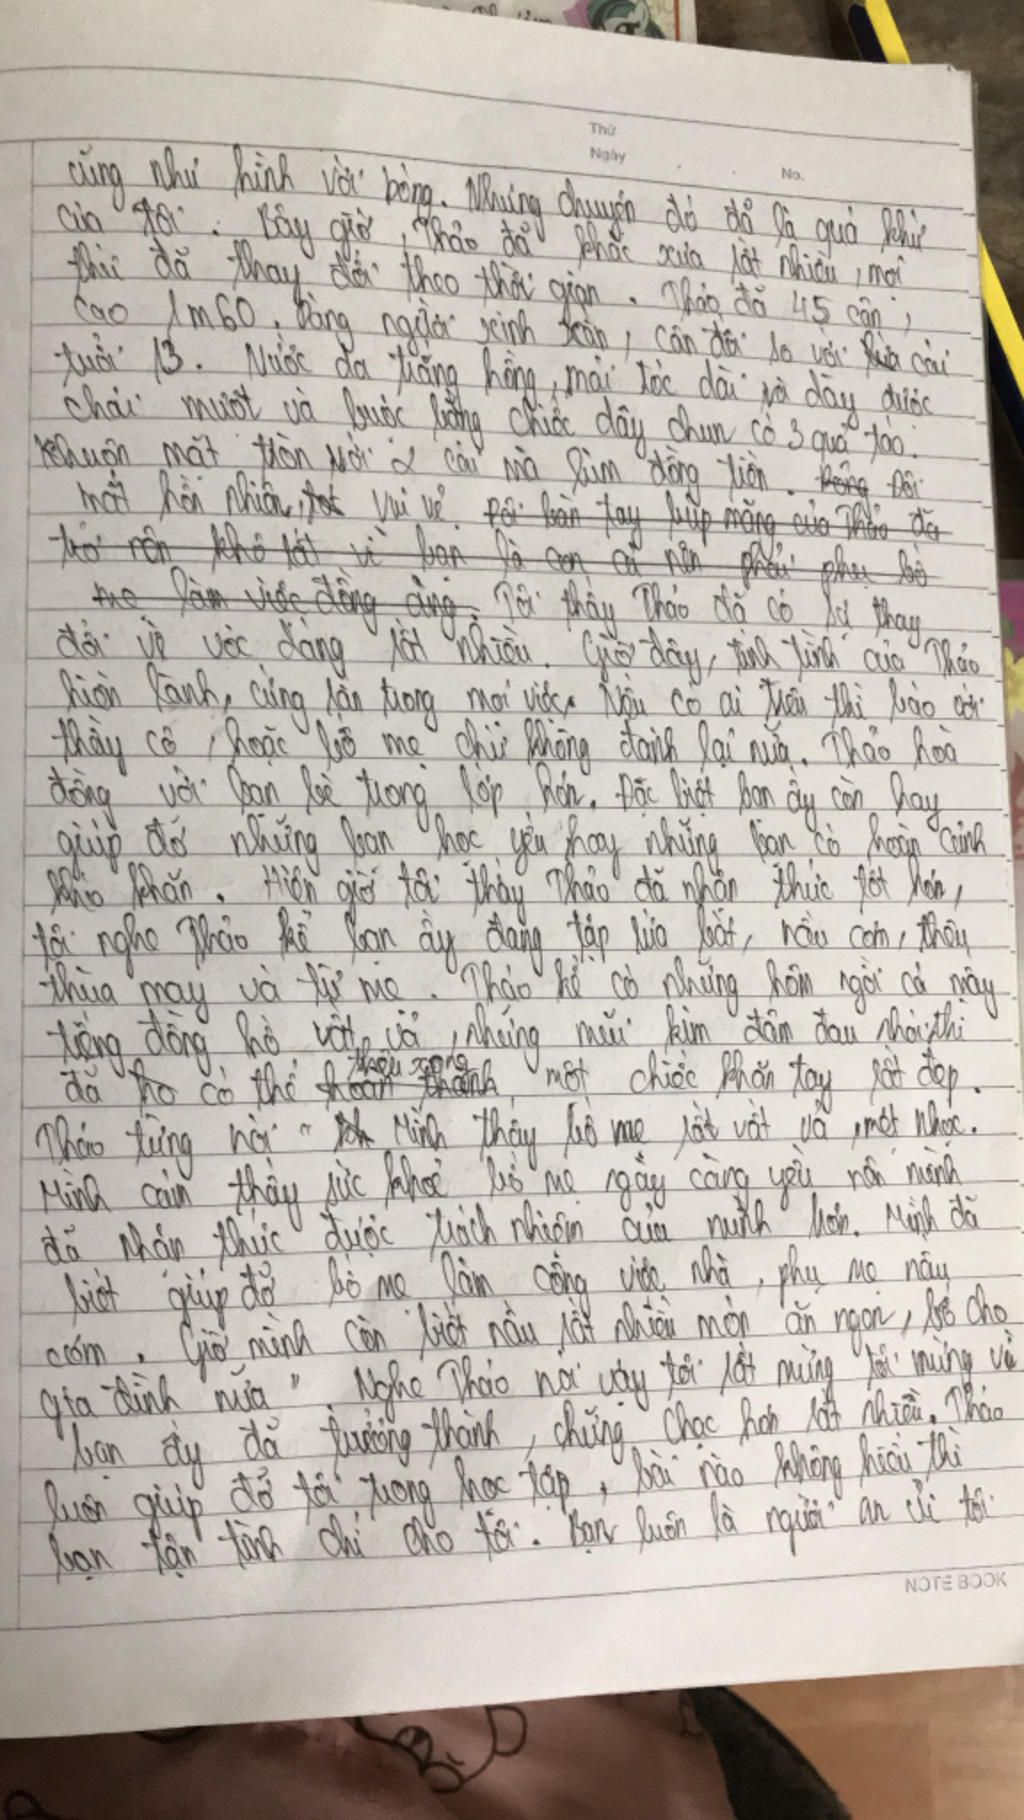 Thứ
Ngày
No.
cũng như hình với bóng. Nhưng chuyện đó đã là quá khứ
của tôi. Bây giờ, Thảo đã khác xưa rất nhiều, mọi
thứ đã thay đổi theo thời gian. Thảo đã 45 cân,
cao 1m60. Dáng người xinh xắn, cân đối so với lứa cái
tuổi 13. Nước da trắng hồng, mái tóc dài và dày được
chải mượt và buộc bằng chiếc dây chun có 3 quả táo.
Khuôn mặt tròn với 2 cái má lúm đồng tiền. Đôi
mắt hồn nhiên, vui vẻ. Đôi bàn tay búp măng của Thảo đã
trở nên khô rất vì bạn là con cả nên phải phụ bố
mẹ làm việc đồng áng. Tôi thấy Thảo đã có sự thay
đổi về vóc dáng rất nhiều. Giờ đây, tính tình của Thảo
hiền lành, cứng rắn trong mọi việc. Nếu có ai trêu thì bảo với
thầy cô, hoặc bố mẹ chứ không đánh lại nữa. Thảo hoà
đồng với bạn bè trong lớp hơn. Đặc biệt bạn ấy còn hay
giúp đỡ những bạn học yếu hay những bạn có hoàn cảnh
khó khăn. Hiện giờ tôi thấy Thảo đã nhận thức tốt hơn,
tôi nghe Thảo kể bạn ấy đang tập rửa bát, nấu cơm, thêu
thùa may vá từ mẹ. Thảo kể có những hôm ngồi cả mấy
tiếng đồng hồ vất vả, những mũi kim đâm đau nhói thì
thêu xong
đã có thể hoàn thành một chiếc khăn tay rất đẹp.
Thảo từng nói " Mình thấy bố mẹ rất vất vả, mệt nhọc.
Mình cảm thấy sức khoẻ bố mẹ ngày càng yếu nên mình
đã nhận thức được trách nhiệm của mình hơn. Mình đã
biết giúp đỡ bố mẹ làm công việc nhà, phụ mẹ nấu
cơm. Giờ mình còn biết nấu rất nhiều món ăn ngon, bổ cho
gia đình nữa" Nghe Thảo nói vậy tôi rất mừng tôi mừng vì
bạn ấy đã trưởng thành, chững chạc hơn rất nhiều. Thảo
luôn giúp đỡ tôi trong học tập, bài nào không hiểu thì
bạn tận tình chỉ cho tôi. Bạn luôn là người an ủi tôi
NOTE BOOK